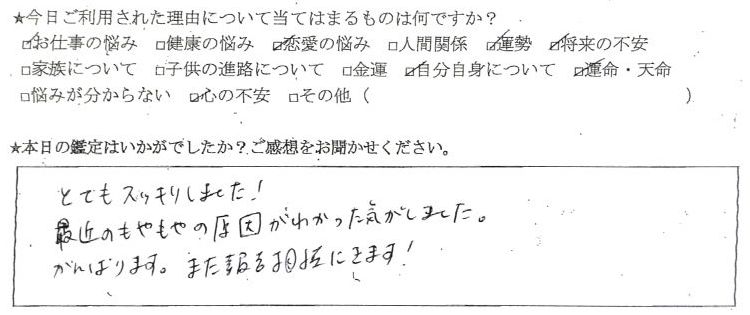 ★今日ご利用された理由について当てはまるものは何ですか？
☑お仕事の悩み □健康の悩み ☑恋愛の悩み □人間関係 ☑運勢 ☑将来の不安
□家族について □子供の進路について □金運 ☑自分自身について ☑運命・天命
□悩みが分からない ☑心の不安 □その他（ ）
★本日の鑑定はいかがでしたか？ご感想をお聞かせください。
とてもスッキリしました！
最近のもやもやの原因がわかった気がしました。
がんばります。また報告 にきます！